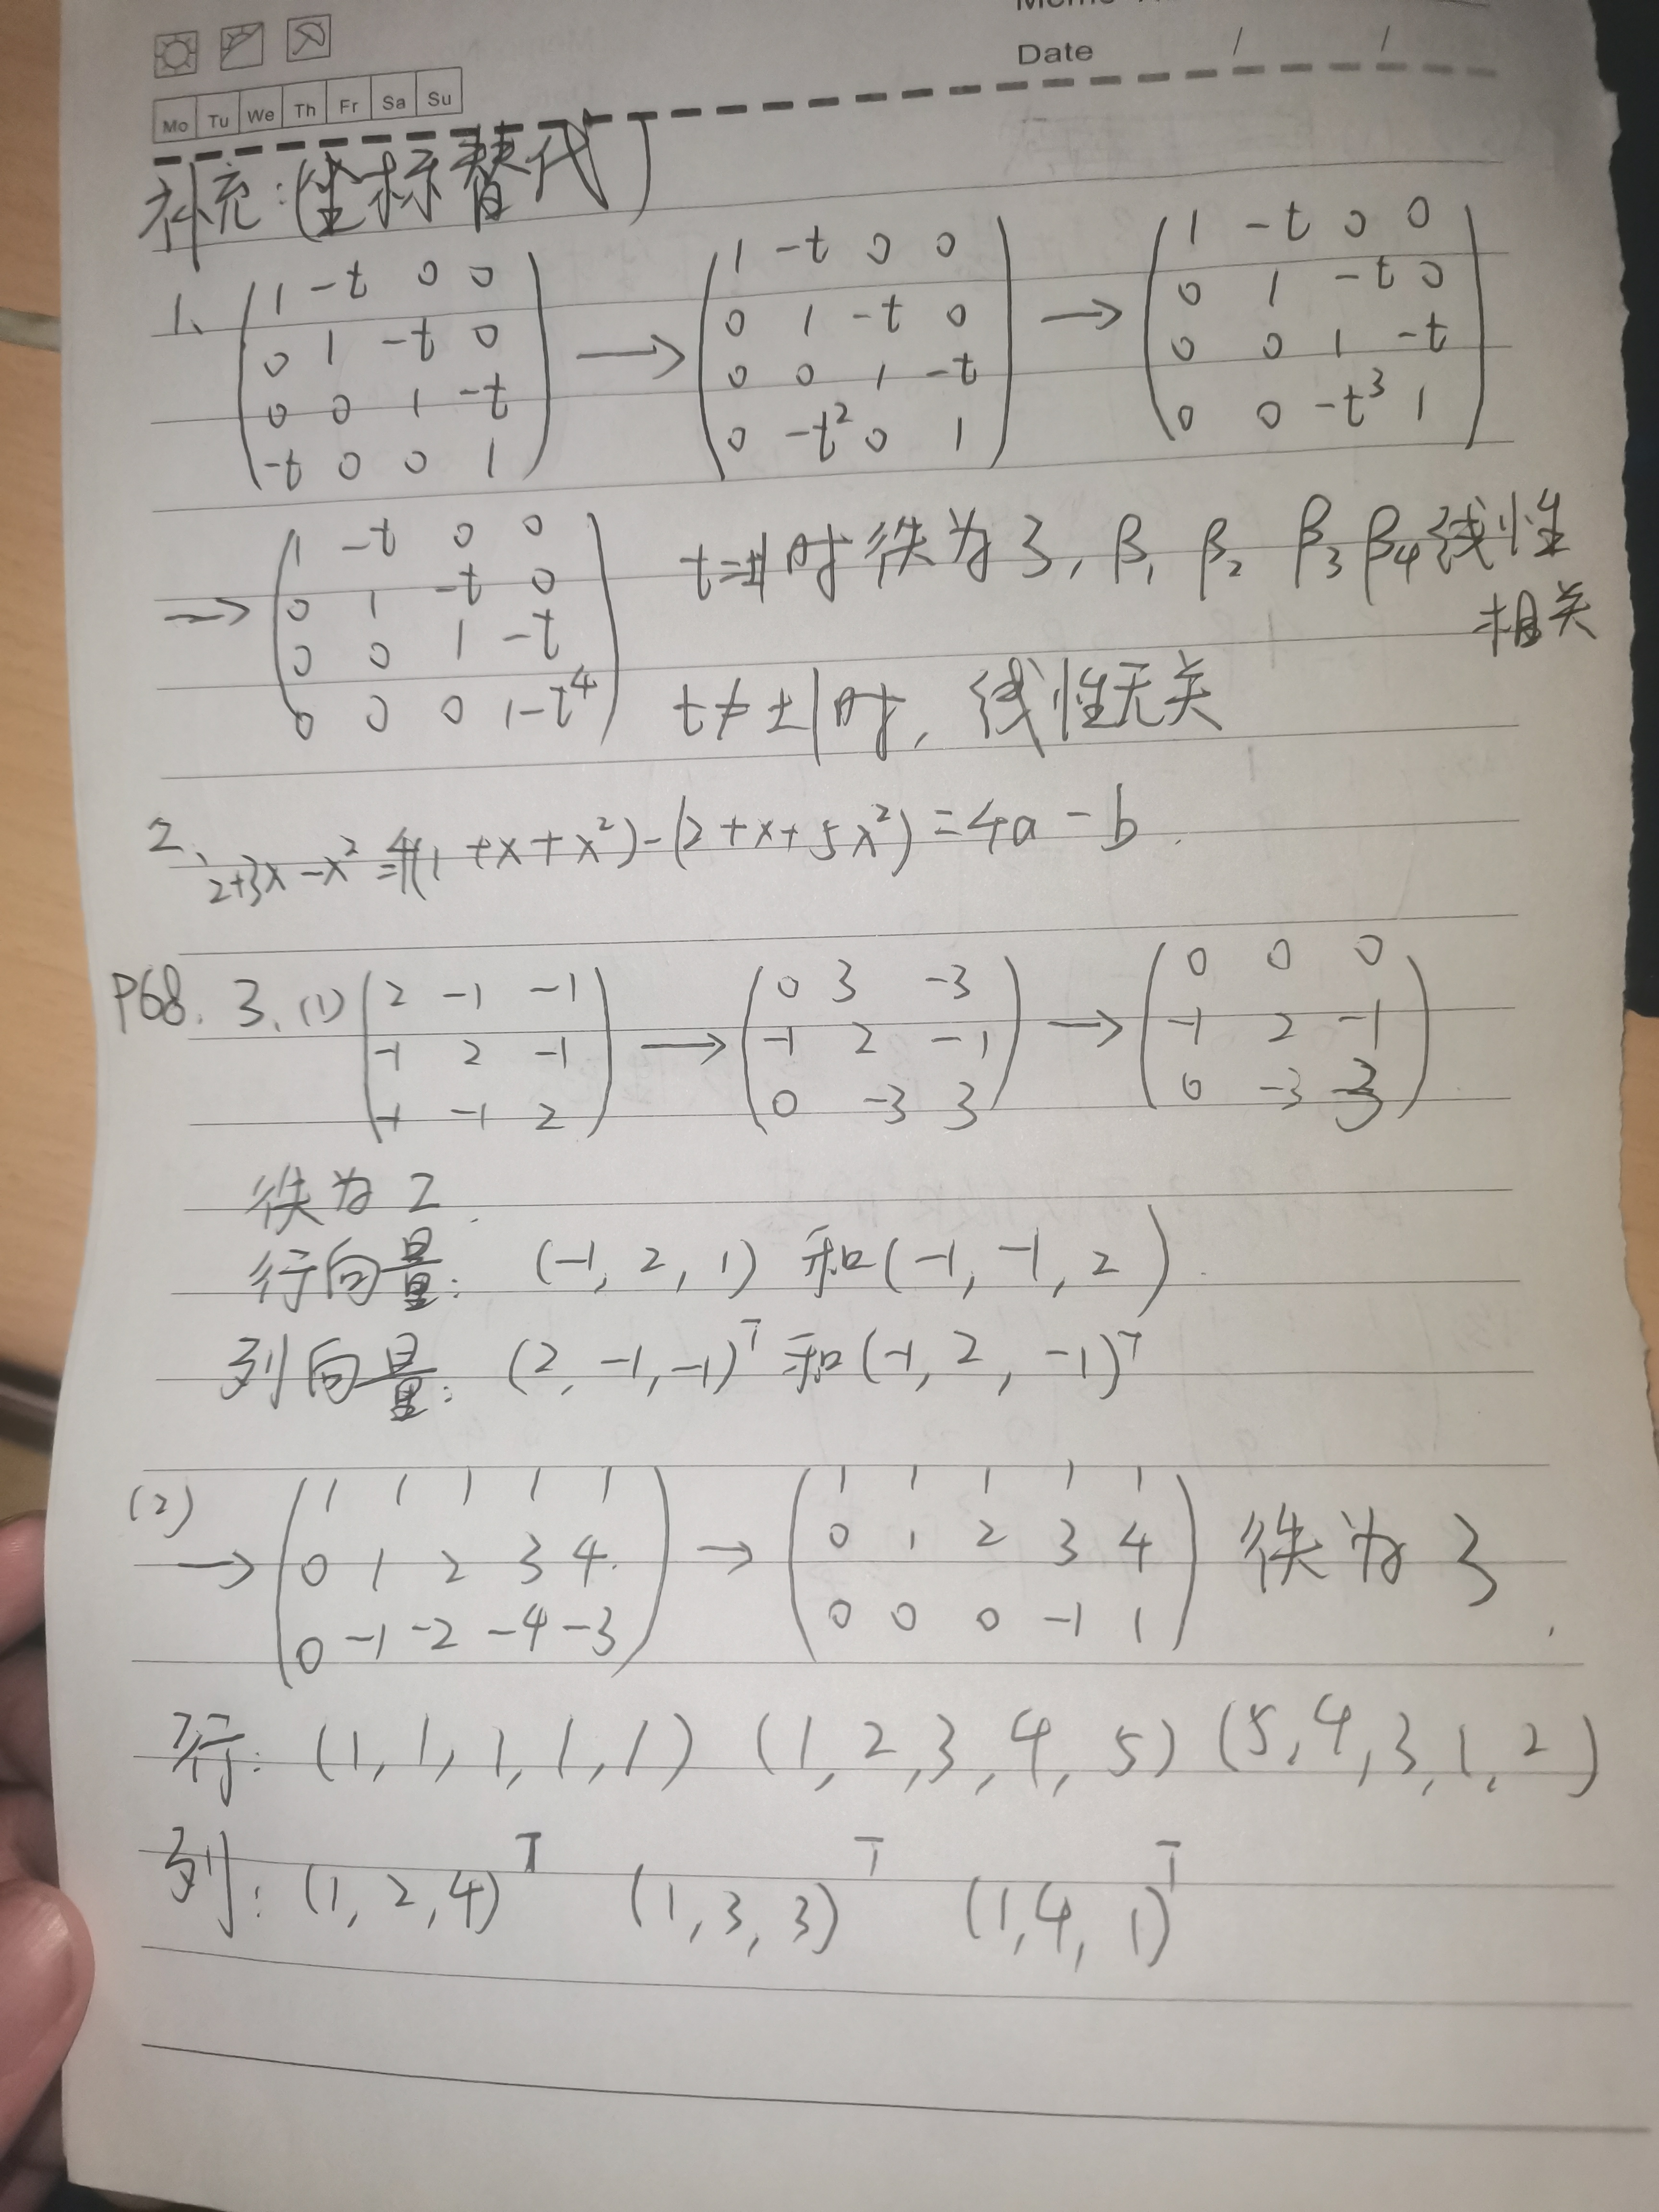 Date / /
Mo Tu We Th Fr Sa Su
补充:(坐标替代)
1、
1 -t 0 0
0 1 -t 0
0 0 1 -t
-t 0 0 1
→
1 -t 0 0
0 1 -t 0
0 0 1 -t
0 -t² 0 1
→
1 -t 0 0
0 1 -t 0
0 0 1 -t
0 0 -t³ 1
→
1 -t 0 0
0 1 -t 0
0 0 1 -t
0 0 0 1-t⁴
t=±1时秩为3, β₁ β₂ β₃ β₄线性
相关
t≠±1时, 线性无关
2、
2+3x-x²=4(1+x+x²)-(2+x+5x²)=4a-b.
P68. 3. (1)
2 -1 -1
-1 2 -1
-1 -1 2
→
0 3 -3
-1 2 -1
0 -3 3
→
0 0 0
-1 2 -1
0 -3 3
秩为2.
行向量: (-1, 2, 1) 和(-1, -1, 2).
列向量: (2, -1, -1)ᵀ 和(-1, 2, -1)ᵀ
(2)
→
1 1 1 1 1
0 1 2 3 4
0 -1 -2 -4 -3
→
1 1 1 1 1
0 1 2 3 4
0 0 0 -1 1
秩为3.
行: (1, 1, 1, 1, 1) (1, 2, 3, 4, 5) (5, 4, 3, 1, 2)
列: (1, 2, 4)ᵀ (1, 3, 3)ᵀ (1, 4, 1)ᵀ